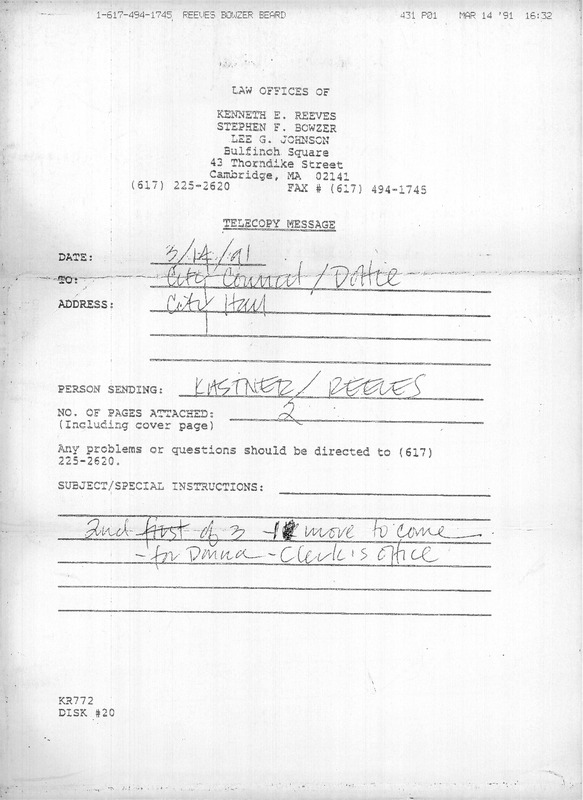 1-617-494-1745 REEVES BOWZER BEARD 431 P01 MAR 14 '91 16:32
LAW OFFICES OF
KENNETH E. REEVES
STEPHEN F. BOWZER
LEE G. JOHNSON
Bulfinch Square
43 Thorndike Street
Cambridge, MA 02141
(617) 225-2620 FAX # (617) 494-1745
TELECOPY MESSAGE
DATE: 3/14/91
TO: City Council / Dottie
ADDRESS: City Hall
PERSON SENDING: KASTNER / REEVES
NO. OF PAGES ATTACHED: 2
(Including cover page)
Any problems or questions should be directed to (617)
225-2620.
SUBJECT/SPECIAL INSTRUCTIONS:
2nd first of 3 - 1 move to come
- for Donna - Clerk's office
KR772
DISK #20